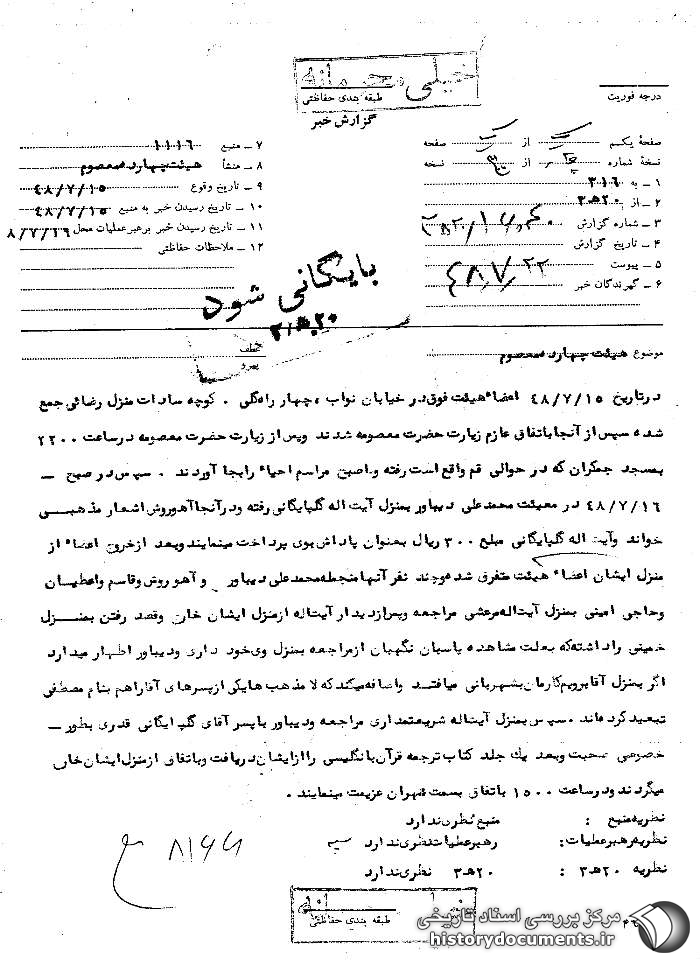 خیلی محرمانه
طبقه بندی حفاظتی
درجه فوریت
گزارش خبر
صفحهٔ یکم از صفحه
نسخهٔ شماره از نسخه
۱ ـ به ۳۱۶
۲ ـ از ۲۰هـ۳
۳ ـ شماره گزارش
۴ ـ تاریخ گزارش
۵ ـ پیوست ۴۸/۷/۲۲
۶ ـ گیرندگان خبر
۷ ـ منبع ۱۱۱۶
۸ ـ منشأ هیئت چهارده معصوم
۹ ـ تاریخ وقوع ۴۸/۷/۱۵
۱۰ ـ تاریخ رسیدن خبر به منبع ۴۸/۷/۱۵
۱۱ ـ تاریخ رسیدن خبر برهبر عملیات محل ۸/۷/۱۶
۱۲ ـ ملاحظات حفاظتی
بایگانی شود
۲۰هـ۳
موضوع هیئت چهارده معصوم
درتاریخ ۴۸/۷/۱۵ اعضاء هیئت فوق در خیابان نواب ، چهار راه گلی . کوچه سادات منزل رضائی جمع
شده سپس از آنجا باتفاق عازم زیارت حضرت معصومه شدند وپس از زیارت حضرت معصومه درساعت ۲۲۰۰
بمسجد جمکران که در حوالی قم واقع است رفته وتاصبح مراسم احیاء را بجا آوردند . سپس در صبح ـ
۴۸/۷/۱۶ در معیت محمدعلی دیباور بمنزل آیت اله گلپایگانی رفته ودرآنجا آهوروش اشعار مذهبـــی
خواند وآیت اله گلپایگانی مبلغ ۳۰۰ ریال بعنوان پاداش بوی پرداخت مینمایند وبعد ازخروج اعضاء از
منزل ایشان اعضاء هیئت متفرق شده وچند نفر آنها منجمله محمدعلی دیباور و آهوروش وقاسم واعظیان
وحاجی امینی بمنزل آیت اله مرعشی مراجعه وپس ازدیدار آیت اله ازمنزل ایشان خارج وقصد رفتن بمنـــزل
خمینی را داشته که بعلت مشاهده پاسبان نگهبان ازمراجعه بمنزل وی خود داری ودیباور اظهار میدارد
اگر بمنزل آقا برویم کارمان بشهربانی میافتــد واضافه میکند که لا مذهب ها یکی ازپسرهای آقاراهم بنام مصطفی
تبعید کرده اند . سپس بمنزل آیت اله شریعتمداری مراجعه ودیباور با پسر آقای گلپایگانی قدری بطور ـ
خصوصی صحبت وبعد یك جلد کتاب ترجمه قرآن بانگلیسی را ازایشان دریافت وباتفاق ازمنزل ایشان خارج
میگردند ودرساعت ۱۵۰۰ باتفاق بسمت تهران عزیمت مینمایند .
نظریه منبع : منبع نظری ندارد
نظریه رهبر عملیات : رهبر عملیات نظری ندارد
نظریه ۲۰هـ۳ : ۲۰هـ۳ نظری ندارد
طبقه بندی حفاظتی
مرکز بررسی اسناد تاریخی
historydocuments.ir